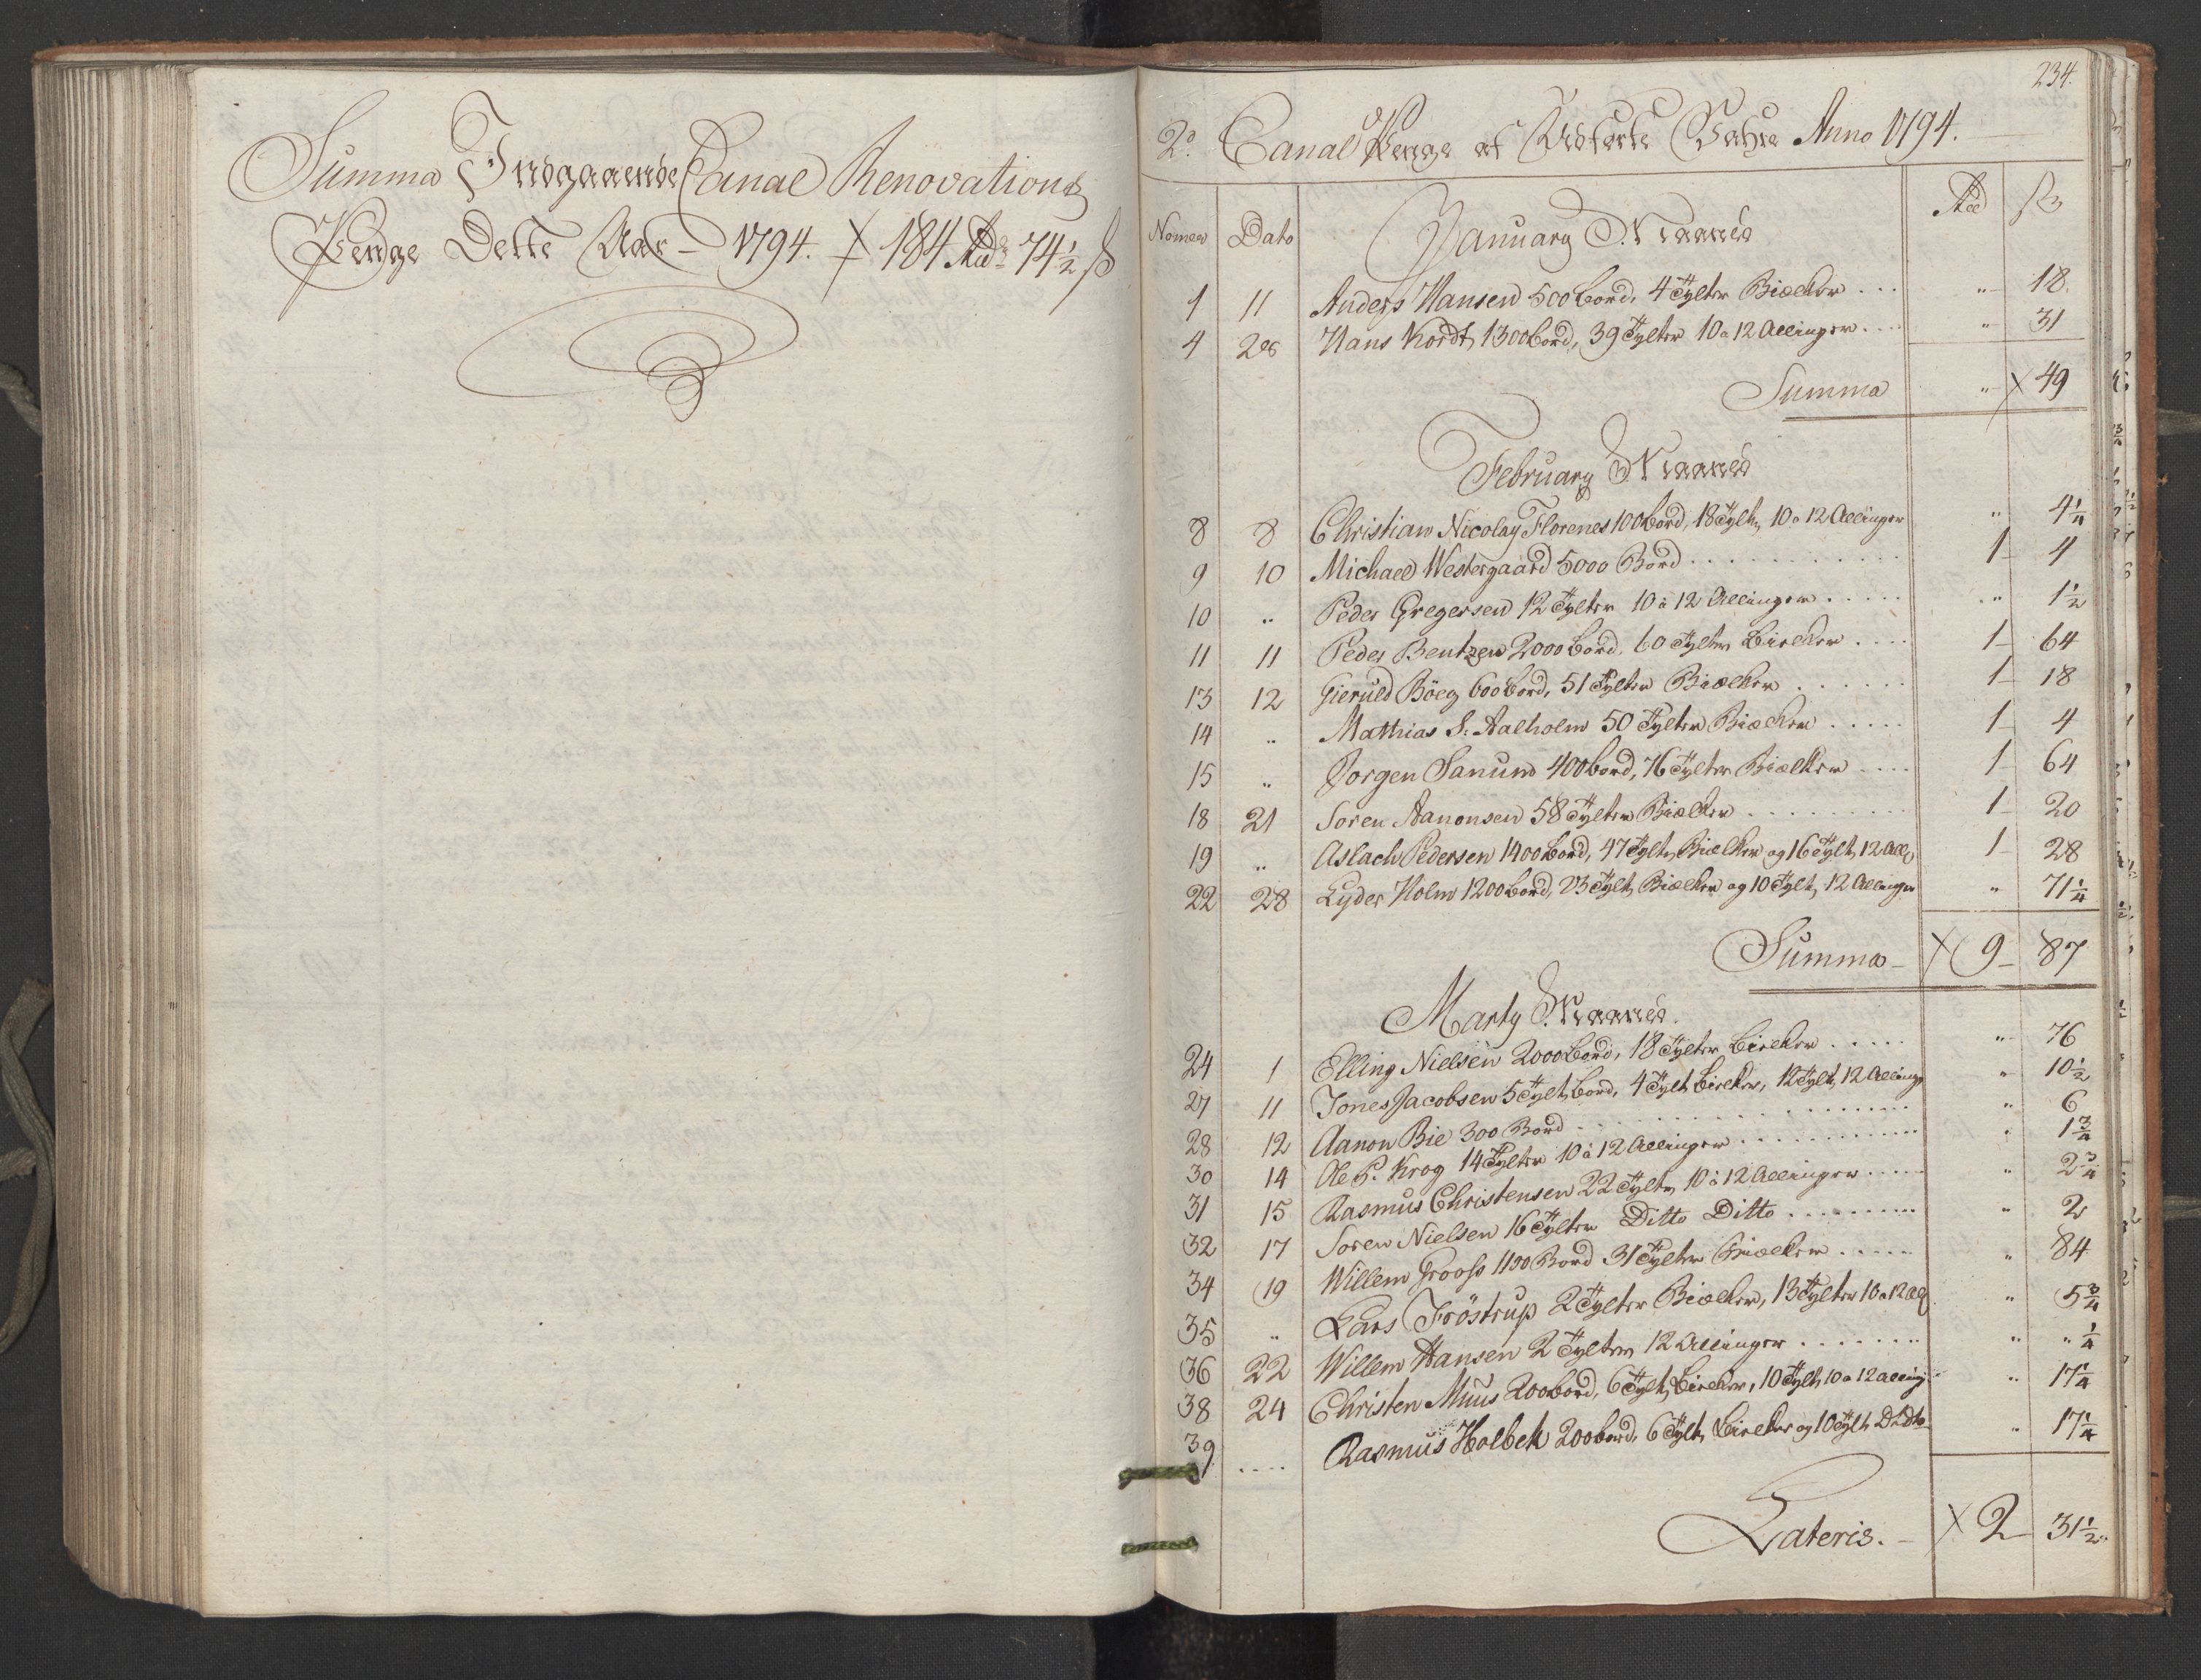 Summa Indgaaende Canal Renovations
Penge Dette Aar - 1794. 184 Rd 74½ ß
234.
2º Canal Penge af Udførte Vahre Anno 1794.
Nomer Dato January Maaned Rd ß
1 11 Anders Hansen 500 bord, 4 Tylter Biælker . . . " 18.
4 28 Hans Kordt, 1300 bord, 39 Tylter 10 a 12 Allinger . . . " 31
Summa " 49
February Maaned
8 8 Christian Nicolay Florenes 100 bord, 18 Tylt, 10 a 12 Allinger " 4¼
9 10 Michael Westergaard 5000 Bord . . . . . . . . . . 1 - 4
10 " Peder Gregersen 12 Tylter 10 à 12 Allinger . . . . . " 1½
11 11 Peder Bentzen 2000 bord, 60 Tylter Birelker . . . . 1 - 64
13 12 Gieruld Böeg 600 bord, 51 Tylter Biælker . . . . . . 1 - 18
14 " Mathias S: Aalholm 50 Tylter Biælker . . . . . 1 - 4
15 " Jorgen Sanum 400 bord, 76 Tylter Biælker . . . . 1 - 64
18 21 Soren Aanonsen 58 Tylter Biælker . . . . . . . . 1 - 20
19 " Aslach Pedersen 1400 bord, 47 Tylt, Biælker og 16 Tylt, 12 All 1 - 28
22 28 Lyder Holm 1200 bord, 23 Tylt, Biælker og 10 Tylt, 12 Allinger " 71¼
Summa - 9 - 87
Marty Maaned.
24 1 Elling Nielsen 2000 bord, 18 Tylter birelker . . . . . " 76
27 11 Jones Jacobsen 5 Tylt, bord, 4 Tylt birelker, 12 Tylt, 12 Alling " 10½
28 12 Aanon Bie 300 Bord . . . . . . . . . . . . " 6
30 14 Ole P. Krog 14 Tylter 10 à 12 Allinger . . . . . . . . " 1¾
31 15 Rasmus Christensen 22 Tylt, 10 à 12 Allinger . . . . . " 2¾
32 17 Soren Nielsen 16 Tylter Ditto Ditto . . . . . . . . . . " 2
34 19 Willem Grooss 1100 Bord 31 Tylter Biælker . . . . . " 84
35 " Lars Fröstrup 2 Tylter Biælker, 13 Tylter 10 a 12 All " 5¾
36 22 Willem Hansen 2 Tylter 12 Allinger . . . . . . . " " ¼
38 24 Christen Muus 200 bord, 6 Tylt, birelker, 10 Tylt, 10 a 12 alling " 17¼
39 . . . . Rasmus Holbek 200 bord, 6 Tylt, birelker og 10 Tylt, D: dto " 17¼
Lateris. - 2 - 31½